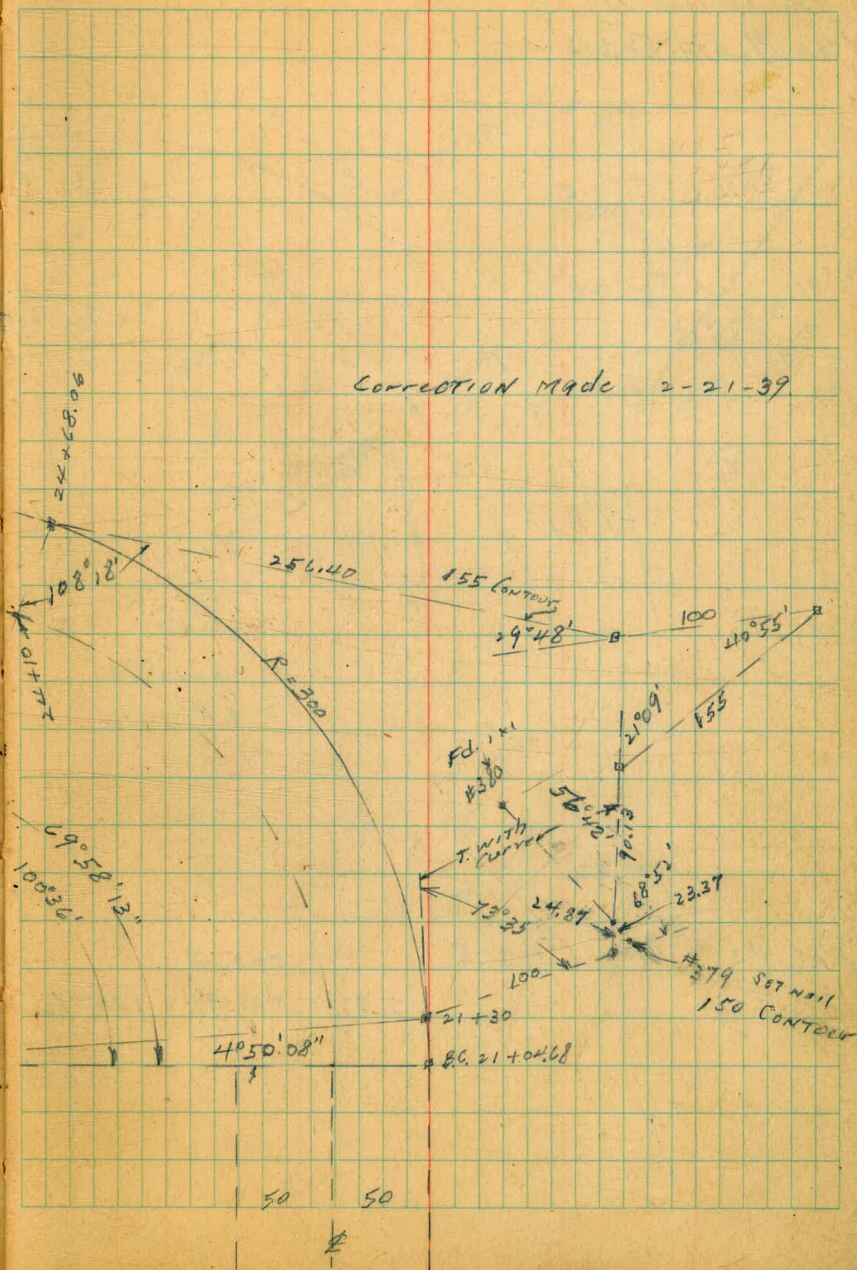 Correction Made 2-21-39
24+68.05
108°18'
256.40
155 Contour
29°48'
100
40°55'
155
R=300
21°09'
Fd. 1x1
#380
56°42'
90.13
T. With
Curve
68°52'
73°35
24.87
23.37
#379 Set nail
150 Contour
100
69°58'13"
100°36'
21+30
4°50'08"
B.C. 21+04.68
50 50
℄